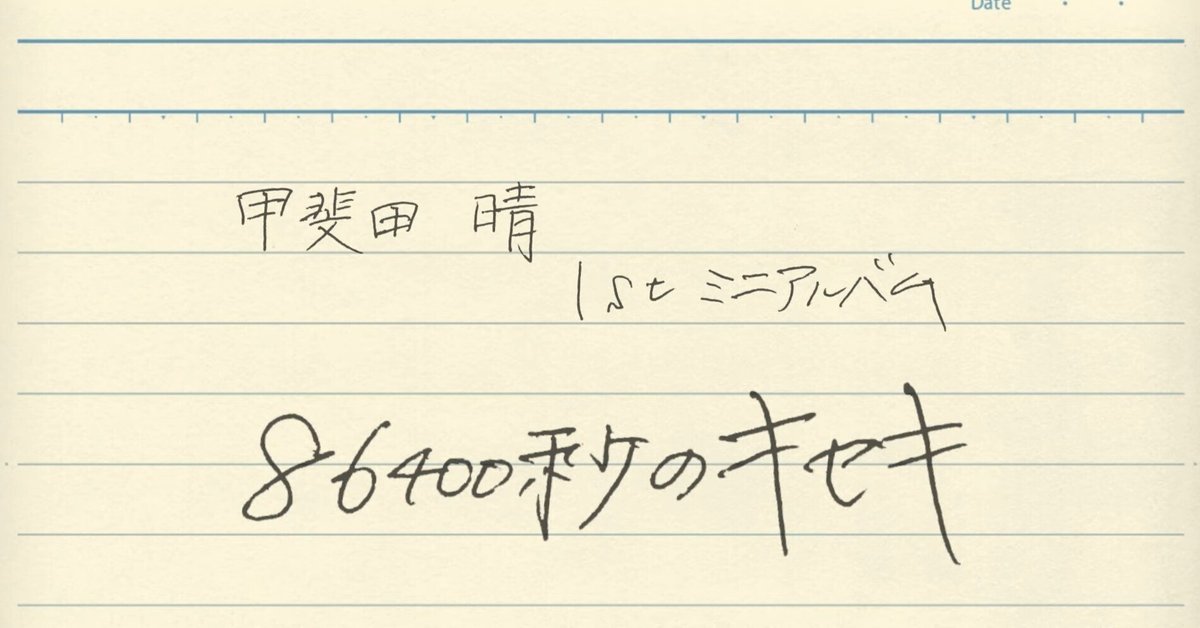 Date
甲斐田 晴
1st ミニアルバム
86400秒のキセキ